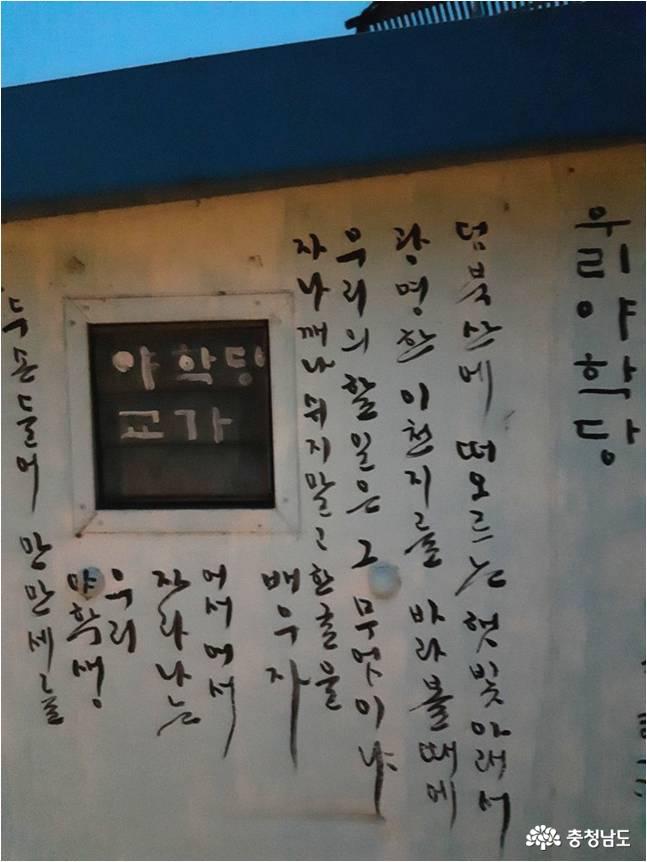 우리야학당
덤북산에 떠오르는 햇빛 아래서
광명한 이천지를 바라볼때에
우리의 할일은 그 무엇이냐
자나깨나 쉬지말고 한글을
배우자
어서어서
자라나는
우리
야학생
두손들어 만만세를
야학당
교가
충청남도